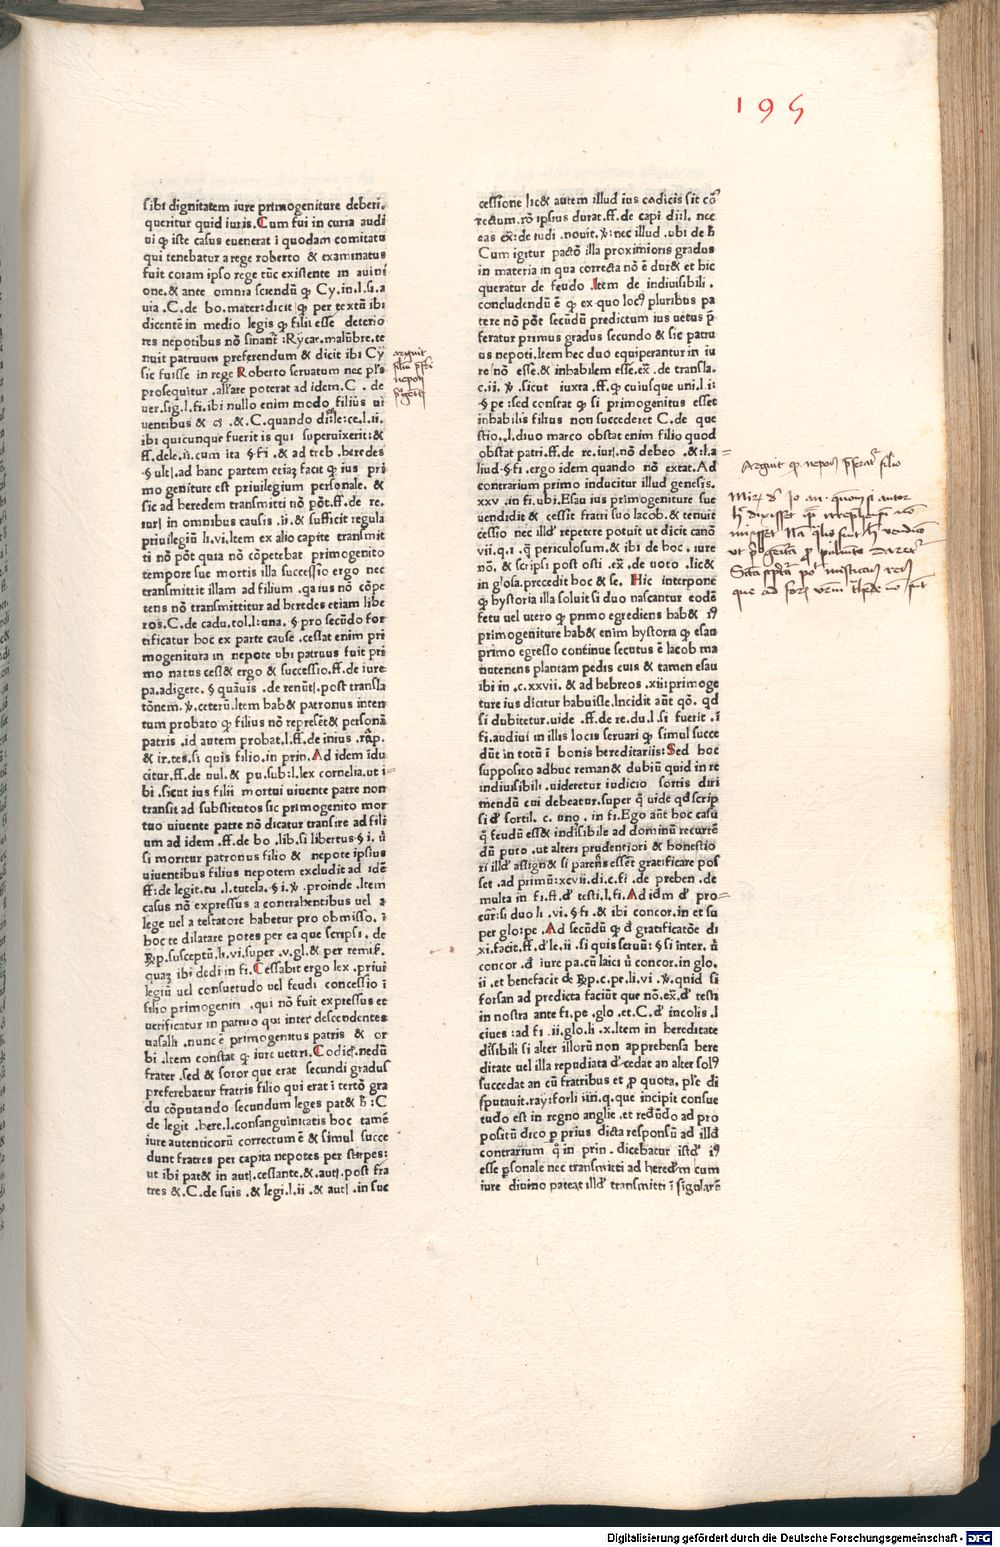 195
sibi dignitatem iure primogeniture deberi.
queritur quid iuris. Cum fui in curia audi
ui ꝙ iste casus euenerat ī quodam comitatu
qui tenebatur a rege roberto & examinatus
fuit coram ipso rege tūc existente in auini
one. & ante omnia sciendū ꝙ Cy. in .l. si. a
uia .C. de bo. mater: dicit ꝙ per textū ibi
dicentē in medio legis ꝙ filii esse deterio
res nepotibus nō sinant̄ : Rycar. malūbre. te
nuit patruum preferendum & dicit ibi Cy
sic fuisse in rege Roberto seruatum nec pl's
prosequitur . all'are poterat ad idem. C . de
uer. sig. l. fi. ibi nullo enim modo filius ui
uentibus & & .C. quando di: le: ce. l. ii.
ibi quicunque fuerit is qui superuixerit: &
ff. de le. ii. cum ita § fi . & ad treb . heredes
§ ult. ad hanc partem etiaꝫ facit ꝙ ius pri
mo geniture est priuilegium personale. &
sic ad heredem transmitti nō pōt. ff. de re.
iur. in omnibus causis .ii. & sufficit regula
priuilegiū li. vi. Item ex alio capite transmit
ti nō pōt quia nō cōpetebat primogenito
tempore sue mortis illa successio ergo nec
transmittit illam ad filium .qa ius nō cōpe
tens nō transmittitur ad heredes etiam libe
ros. C. de cadu. tol. l: una. § pro secūdo for
tificatur hoc ex parte cause .cessat enim pri
mogenitura in nepote ubi patruus fuit pri
mo natus cess& ergo & successio. ff. de iure
pa. adigere. § quāuis .de renūt. post transla
tōnem. ꝟ. ceterū. Item hab& patronus inten
tum probato ꝙ filius nō represēt& personā
patris . id autem probat. l. ff. de in ius .
& ir. tes. si quis filio. in prin. Ad idem īdu
citur. ff. de uul. & pu. sub: l. lex cornelia. ut i-
bi .sicut ius filii mortui uiuente patre non
transit ad substitutos sic primogenito mor
tuo uiuente patre nō dicatur transire ad fili
um ad idem .ff. de bo .lib. si libertus § i. ū
si moritur patronus filio & nepote ipsius
uiuentibus filius nepotem excludit ad idē
ff: de legit. tu .l. tutela. § i. ꝟ .proinde .Item
casus nō expressus a contrahentibus uel a
lege uel a testatore habetur pro obmisso. ī
hoc te dilatare potes per ea que scripsi. de
Rp. susceptū. li. vi. super .v. gl. & per remis.
quaꝫ ibi dedi in fi. Cessabit ergo lex .priui
legiū uel consuetudo uel feudi concessio ī
filio primogeniti .qui nō fuit expressus et
uerificatur in patruo qui inter descendentes
uasalli .nunc ē primogenitus patris & or
bi .Item constat ꝙ iure ueteri. Codic. nedū
frater .sed & soror que erat secundi gradus
preferebatur fratris filio qui erat ī tertō gra
du cōputando secundum leges pat& ħ : C
de legit .here. l. consanguinitatis hoc tamē
iure autenticorū correctum ē & simul succe
dunt fratres per capita nepotes per stirpes:
ut ibi pat& in aut. cessante. & aut. post fra
tres &. C. de suis .& legi. l. ii .& aut. in suc
arguit
nepoti
cessione lic& autem illud ius codicis sit cō
rectum. rō ipsius durat. ff. de capi di: l. nec
eas ex: de iudi .nouit. ꝟ: nec illud .ubi de ħ
Cum igitur pactō illa proximioris gradus
in materia in qua correcta nō ē dur& et hic
queratur de feudo .Item de indiuisibili .
concludendū ē ꝙ ex quo loc9 pluribus pa
tere nō pōt secūdū predictum ius uetus p̄
feratur primus gradus secundo & sic patru
us nepoti. Item hec duo equiperantur in iu
re nō esse. & inhabilem esse. ex̄. de transla.
c. ii. ꝟ .sicut iuxta .ff. ꝙ cuiusque uni. l i:
§ pe : sed constat ꝙ si primogenitus esset
inhabilis filius non succederet C. de que
stio. .l. diuo marco obstat enim filio quod
obstat patri. ff. de re. iur. nō debeo .&: l. a=
liud § fi .ergo idem quando nō extat. Ad
contrarium primo inducitur illud genesis.
xxv .in fi. ubi. Esau ius primogeniture sue
uendidit & cessit fratri suo Iacob. & tenuit
cessio nec ill'd repetere potuit ut dicit canō
vii. q. i .q̄ periculosum. & ibi de hoc . iure
nō. & scripsi post osti .ex̄. de uoto .lic&
in glosa. precedit hoc & se. Hic interpone
ꝙ hystoria illa soluit si duo nascantur eodē
fetu uel utero ꝙ primo egrediens hab& i9
primogeniture hab& enim hystoria ꝙ esau
primo egresso continue secutus ē Iacob ma
nu tenens plantam pedis eius & tamen esau
ibi in .c. xxvii. & ad hebreos .xii: primoge
ture ius dicitur habuisse. Incidit aūt qō. qd
si dubitetur. uide .ff. de re. du. l. si fuerit .ī
fi. audiui in illis locis seruari ꝙ simul succe
dūt in totū ī bonis hereditariis: Sed hoc
supposito adhuc reman& dubiū quid in re
indiuisibili .uideretur iudicio sortis diri
mendū cui debeatur. super q̄ uide qd scrip
si d' sortil. c. uno . in fi. Ego aūt hoc casu
q̄ feudū ess& indi'sibile ad dominū recurrē
dū puto .ut alteri prudentiori & honestio
ri ill'd assign& si parentes essēt gratificare pos
set .ad primū: xcvii. di. c. fi .de preben .de
multa in fi. ff. d' testi. l. fi. Ad idm d' pro=
cur: si duo li .vi. § fi .& ibi concor. in et su
per glo: pe. Ad secūdū q̄ d' gratificatōe di
xi. facit. ff. d' le. ii .si quis seruū: § si inter. ū
concor .d' iure pa. cū laici ū concor. in glo.
ii .et benefacit de Rp. c. pe. li. vi .ꝟ. quid si
forsan ad predicta faciūt que nō. ex̄. d' testi
in nostra ante fi. pe .glo .et. C. d' incolis .l
ciues : ad fi .ii. glo. li .x. Item in hereditate
di'sibili si alter illorū non apprehensa here
ditate uel illa repudiata d'cedat an alter sol9
succedat an cū fratribus et ꝑ quota. pl'e di
sputauit. ray: forli iiii. q. que incipit consue
tudo est in regno anglie .et redēūdo ad pro
positū dico ꝑ prius dicta responsū ad ill'd
contrarium q̄ in prin . dicebatur ist'd i9
esse ꝑsonale nec transmitti ad heredem cum
iure diuino pateat ill'd transmitti ī singularē
Arguit ꝙ nepos p̄ferat filio
Digitalisierung gefördert durch die Deutsche Forschungsgemeinschaft - DFG